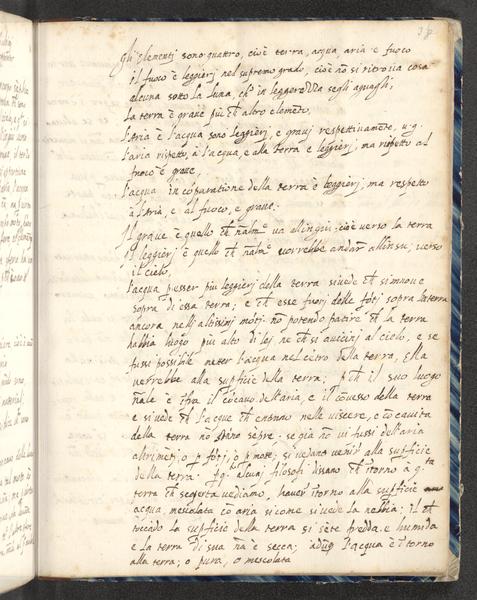 Gli Elementj sono quattro, cioè terra, acqua aria e fuoco
il fuoco è leggierj nel supremo grado, cioè nō si ritroua cosa
alcuna sotto la Luna, ch' in leggerezza segli aguaglj,
La terra è graue più ch altro elemēto,
L'Aria è l'acqua sono leggierj, e grauj respettiuamēte, u.g.
l'aria rispetto, à l'acqua, e alla terra è leggierj, ma rispetto al
fuoco è graue,
L'acqua in cōparatione della terra è leggierj, ma respetto
à l'Aria, e al fuoco, e graue.
Il graue è quello ch nalmte ua allingiù, cioè verso la terra
Il leggierj è quello ch nalmte vorrebbe andar allinsù, verso
il cielo,
L'acqua p esser più leggierj della terra si uede ch si moue
sopra di essa terra, e ch esse fuorj delle fōtj sopra la terra
ancora nellj altissimj mōti nō potendo patire ch la terra
habbia luogo più alto di lej ne ch si auicinj al cielo, e se
fussi possibile metter l'acqua nel cētro della terra, Ella
verrebbe alla supficie della terra; p ch il suo luogo
nāle è ifra il cōcauo dell'aria, e il cōuesso della terra
e si uede ch l'acque ch entrano nelle viscere, e cōcauità
della terra nō stāno sēpre, se già nō ui fussi dell'aria
altrimētj, o p fōtj, o p motj, si uedano venir alla supficie
della terra. alcunj filosofi dissano ch ītorno à q.ta
terra ch scoperta uediamo, hauer ītorno alla supficie
acqua, mescolata cō aria si come si uede la nebbia; il ch
toccādo la supficie della terra si sēte fredda e humida
e la terra di sua nā è secca; adūq l'acqua è ītorno
alla terra; o pura, o mescolata